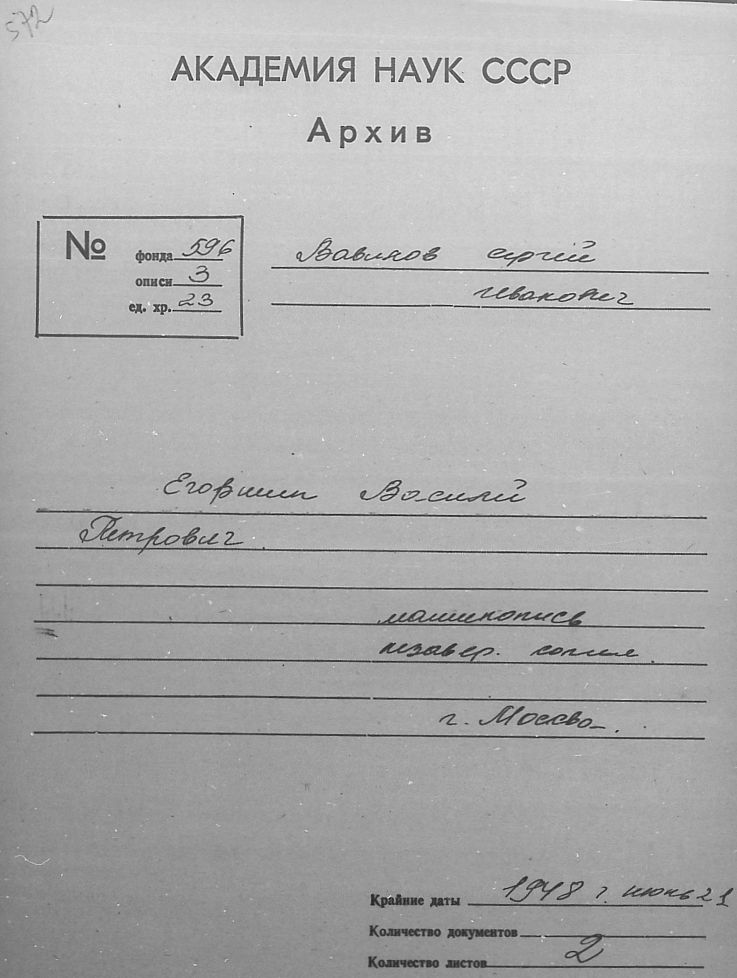 572
АКАДЕМИЯ НАУК СССР
Архив
№
фонда 596
описи 3
ед. хр. 23
Вавилов Сергей
Иванович
Егоршин Василий
Петрович
машинопись
незавер. копия.
г. Москва.
Крайние даты 1948 г. июнь 21
Количество документов
Количество листов 2